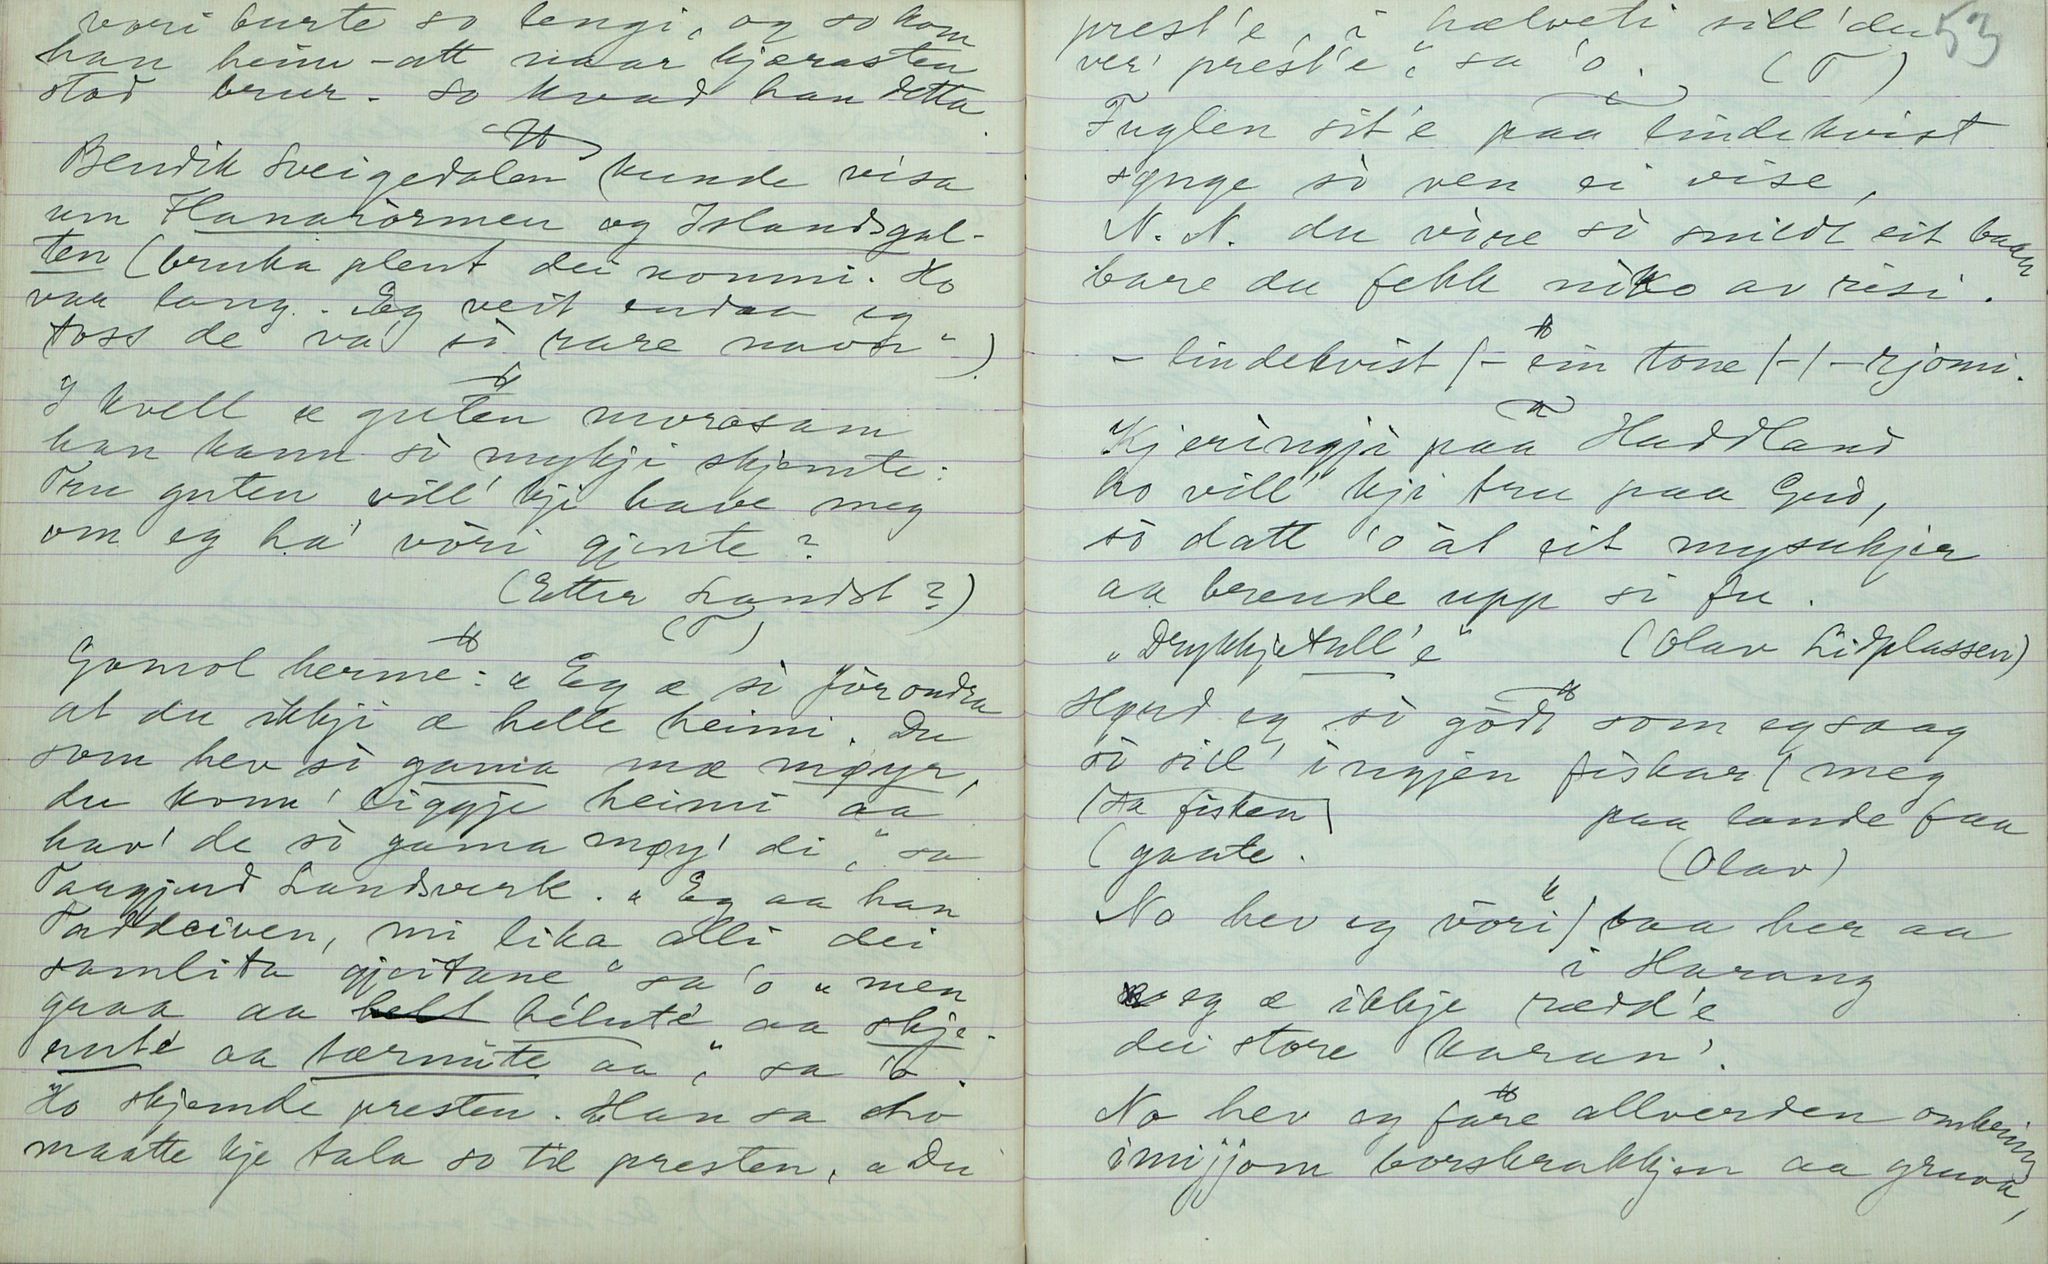 vori burte so lengi, og so kom
han heim-att naar kjærasten
stod brur. So kvad han detta.
Bendik Sveigedalen kunde visa
um Hanarormen og Islandsgal-
ten (bruka plent dei nomni. Ho
var lang. "Eg veit endaa eg
toss de va' so rare navn")
I kvell æ guten morosam
han kann so mykji skjemte:
Tru guten vill' kji have meg
om eg ha' vòri gjente?
(Etter Landst?)
(T)
Gomol herme: "Eg æ so forondra
at du ikkji æ helle heimi. Du
som hev so gama mæ møyr,
du konn' liggje heimi aa
hav' de so gama møy' di," sa
Taargjerd Landsverk. "Eg aa han
Taddeiven, mi lika alli dei
samlita gjeitane" sa 'o "men
graa aa helute aa skje-
nute aa tærnute aa," sa 'o.
Ho skjemde presten. Han sa ho
maatte kje tala so til presten. "Du
53
prest'e, i hælveti sill' du
ver' prest'e", sa 'o. (T)
Fuglen sit'e paa lindekvist
synge so ven ei vise,
N. N. du vòre so snildt eit baan
bare du fekk niko av risi.
- lindekvist /- ein tone /-/- rjomi.
Kjeringji paa Haddland
ho vill' kji tru paa Gud,
so datt 'o at eit mysukjer
aa brende upp si fu.
"Drykkjetull'e" (Olav Lidplassen)
Hørd eg so godt som eg saag
so sill' ingjen fiskar meg
(sa fisken) paa lande faa
(gaate. (Olav)
No hev eg vòri baa her aa
i Harang
eg æ ikkje rædd'e
dei store karan'.
No hev eg fare allverden omkring
imijjom borskrakkjen aa gruva,